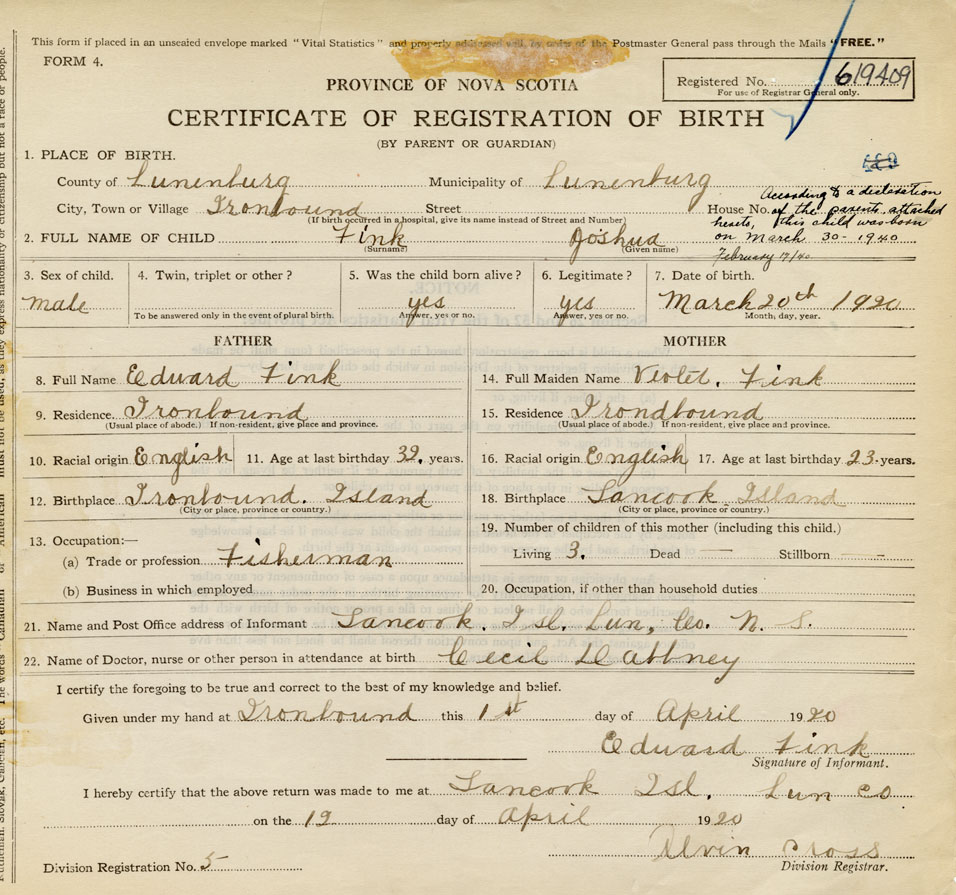 This form if placed in an unsealed envelope marked "Vital Statistics" and properly addressed will, by order of the Postmaster General pass through the Mails "FREE."
FORM 4.
PROVINCE OF NOVA SCOTIA
Registered No. 619409
For use of Registrar General only.
CERTIFICATE OF REGISTRATION OF BIRTH
(BY PARENT OR GUARDIAN)
1. PLACE OF BIRTH.
County of Lunenburg Municipality of Lunenburg
City, Town or Village Ironbound Street House No.
(If birth occurred in a hospital, give its name instead of Street and Number)
According to a declaration
of the parents attached
hereto, this child was born
on March 30 - 1940
February 17/40
2. FULL NAME OF CHILD Fink Joshua
(Surname) (Given name)
3. Sex of child. male
4. Twin, triplet or other?
To be answered only in the event of plural birth.
5. Was the child born alive? yes
Answer, yes or no.
6. Legitimate? yes
Answer, yes or no.
7. Date of birth. March 20th 1920
Month, day, year.
FATHER
8. Full Name Edward Fink
9. Residence. Ironbound
(Usual place of abode.) If non-resident, give place and province.
10. Racial origin English 11. Age at last birthday 39. years.
12. Birthplace Ironbound. Island
(City or place, province or country.)
13. Occupation:—
(a) Trade or profession Fisherman
(b) Business in which employed
MOTHER
14. Full Maiden Name Violet. Fink
15. Residence Irondbound
(Usual place of abode.) If non-resident, give place and province.
16. Racial origin English 17. Age at last birthday 23. years.
18. Birthplace Tancook Island
(City or place, province or country.)
19. Number of children of this mother (including this child.)
Living 3. Dead — Stillborn —
20. Occupation, if other than household duties
21. Name and Post Office address of Informant Tancook. Isl. Lun, Co. N. S.
22. Name of Doctor, nurse or other person in attendance at birth Cecil
I certify the foregoing to be true and correct to the best of my knowledge and belief.
Given under my hand at Ironbound this 1st day of April 1920
Edward Fink
Signature of Informant.
I hereby certify that the above return was made to me at Tancook Isl. Lun Co
on the 12 day of April 1920
Alvin Cross
Division Registrar.
Division Registration No. 5